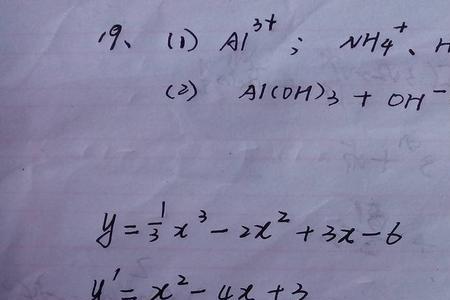 19、 (1) Al³⁺ ; NH₄⁺、H
(2) Al(OH)₃ + OH⁻
y = 1/3 x³ − 2x² + 3x − 6
y' = x² − 4x + 3